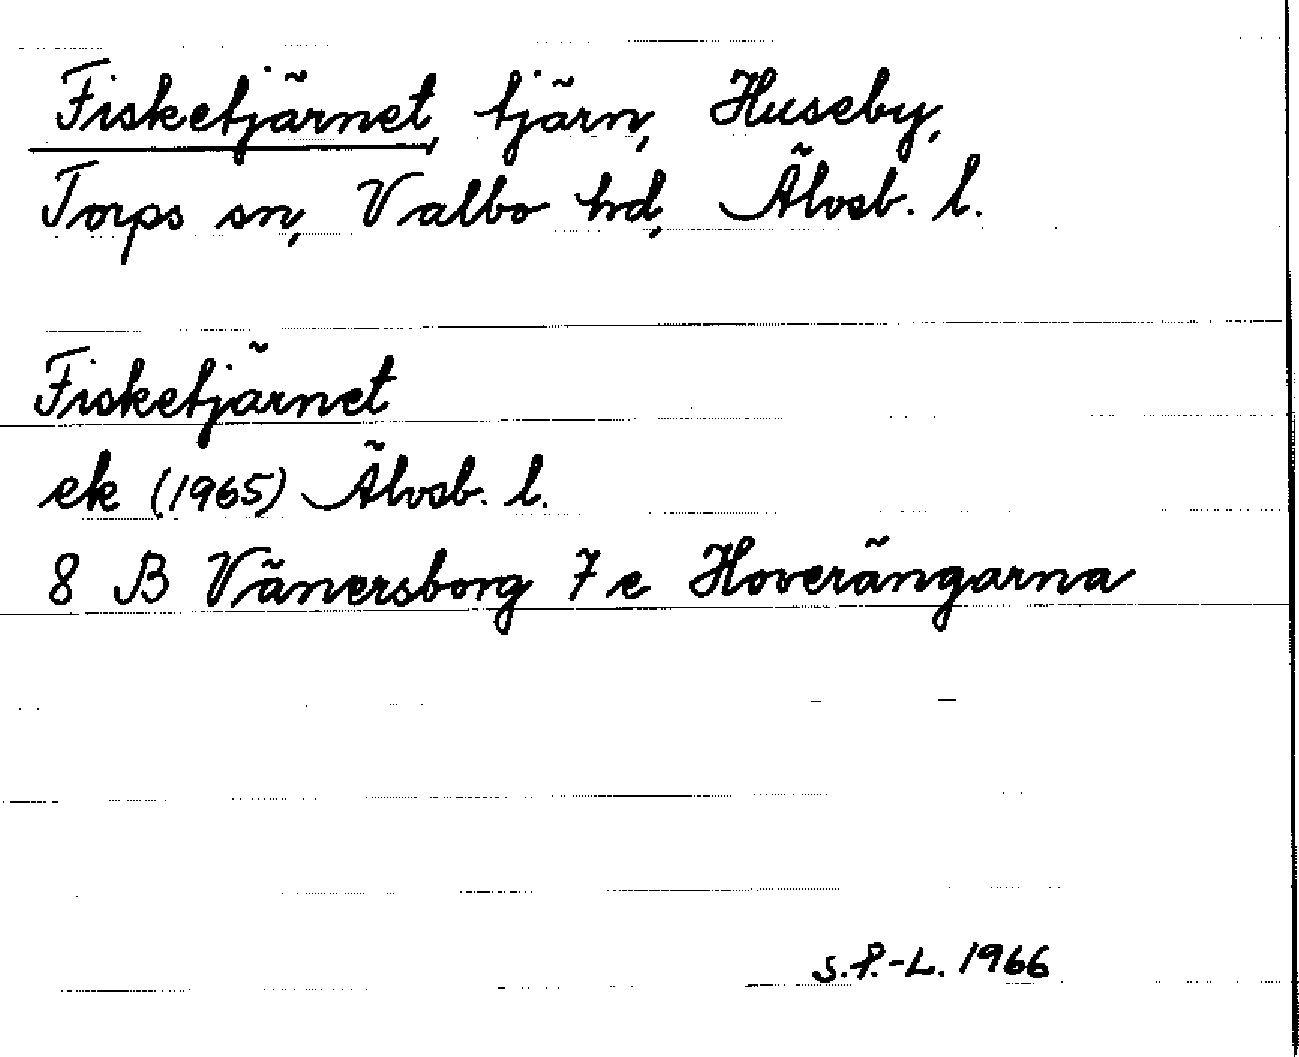 Fisketjärnet, tjärn, Huseby,
Torps sn, Valbo hd, Älvsb. l.
Fisketjärnet
ek (1965) Älvsb. l.
8 B Vänersborg 7 e Hoverängarna
S.P.-L. 1966